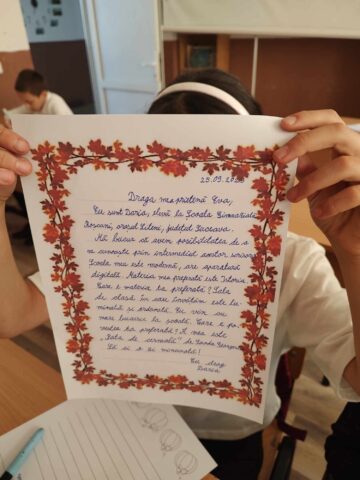 25.09.2023
Draga mea prietenă Eva,
Eu sunt Daria, elevă la Școala Gimnazială
orașul Liteni, județul Suceava.
Mă bucur că avem posibilitatea de a
ne cunoaște prin intermediul acestor scrisori.
Școala mea este modernă, are aparatură
digitală. Materia mea preferată este Istoria.
Care e materia ta preferată? Sala
de clasă în care învățăm este lu-
minată și ordonată. Eu vin cu
mare bucurie la școală. Care e po-
vestea ta preferată? A mea este
„Fata de cireașă" de
Să ai o zi minunată!
Cu drag
Daria